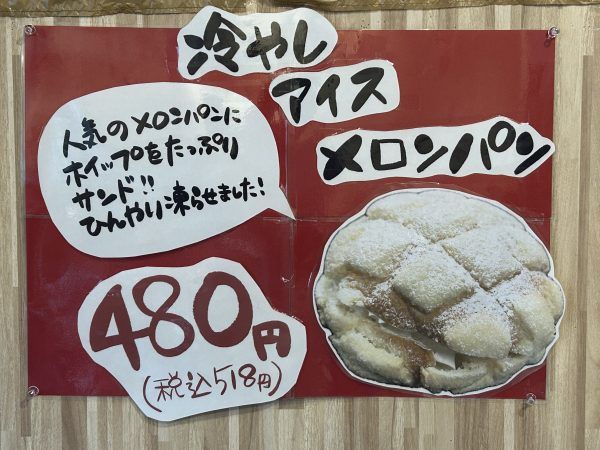 冷やし
アイス
メロンパン
人気のメロンパンに
ホイップをたっぷり
サンド!!
ひんやり凍らせました!
480円
(税込518円)